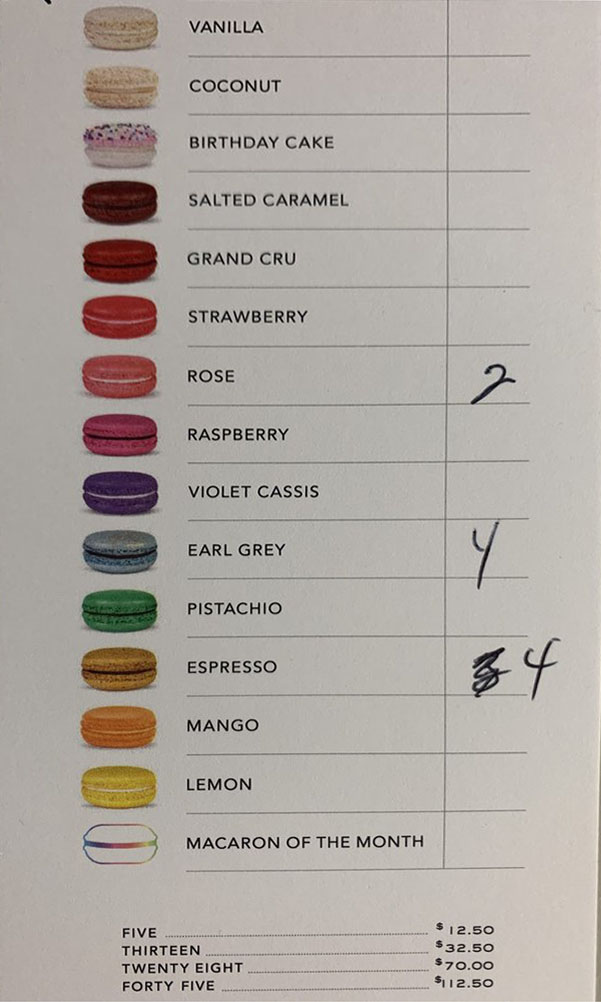 VANILLA
COCONUT
BIRTHDAY CAKE
SALTED CARAMEL
GRAND CRU
STRAWBERRY
ROSE 2
RASPBERRY
VIOLET CASSIS
EARL GREY 4
PISTACHIO
ESPRESSO 4
MANGO
LEMON
MACARON OF THE MONTH
FIVE $12.50
THIRTEEN $32.50
TWENTY EIGHT $70.00
FORTY FIVE $112.50